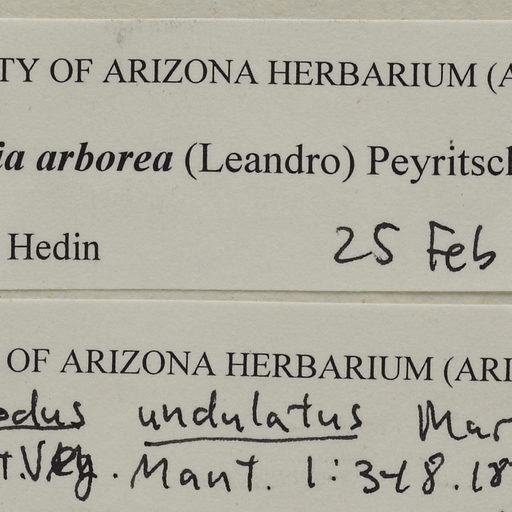 TY OF ARIZONA HERBARIUM (A
ia arborea (Leandro) Peyritsch
Hedin 25 Feb
OF ARIZONA HERBARIUM (ARI
edus undulatus Mar
t. Veg. Mant. 1:348.18